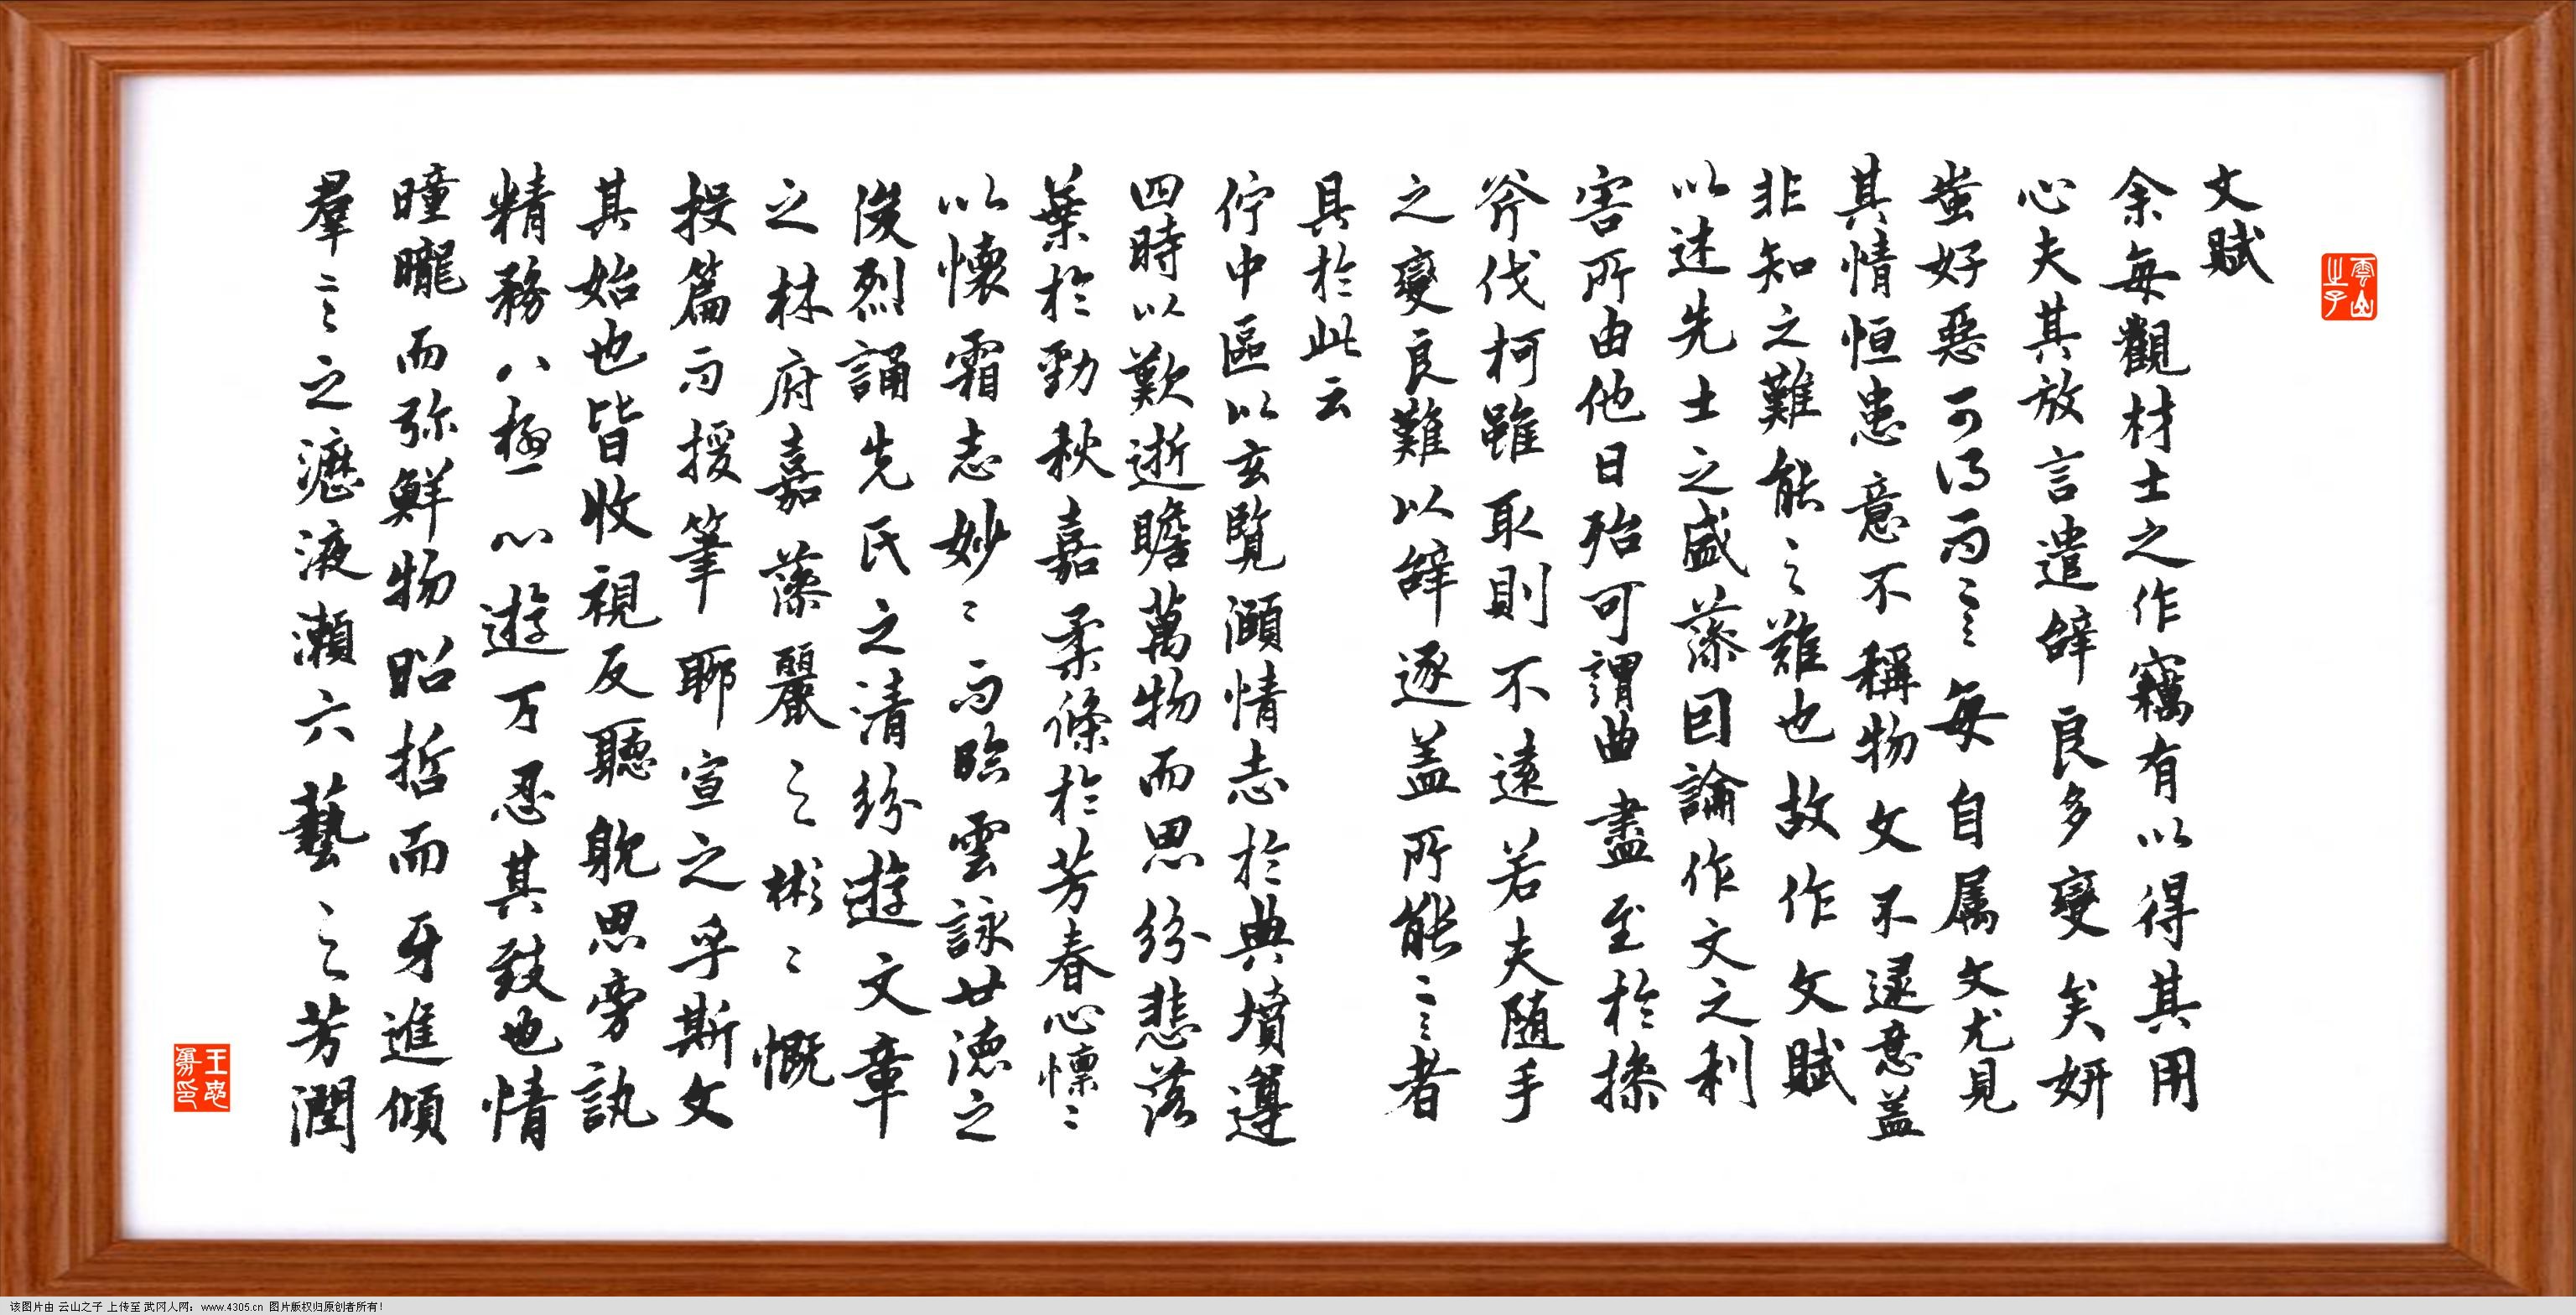 文賦
余每觀材士之作竊有以得其用
心夫其放言遣辭良多變矣妍
蚩好惡可得而言每自属文尤見
其情恒患意不稱物文不逮意盖
非知之難能之難也故作文賦
以述先士之盛藻因論作文之利
害所由他日殆可謂曲盡至於操
斧伐柯雖取則不遠若夫随手
之變良難以辭逐盖所能言者
具於此云
佇中區以玄覽頤情志於典墳遵
四時以歎逝瞻萬物而思紛悲落
葉於勁秋嘉柔條於芳春心懍〻
以懷霜志妙〻而臨雲詠世德之
俊烈誦先氏之清紛遊文章
之林府嘉藻麗之彬〻慨
投篇而援筆聊宣之乎斯文
其始也皆收視反聽躭思旁訊
精務八極心遊万忍其致也情
曈曨而弥鮮物昭哲而牙進傾
羣言之瀝液漱六藝之芳潤
雲山之子
该图片由 云山之子 上传至 武冈人网：www.4305.cn 图片版权归原创者所有！